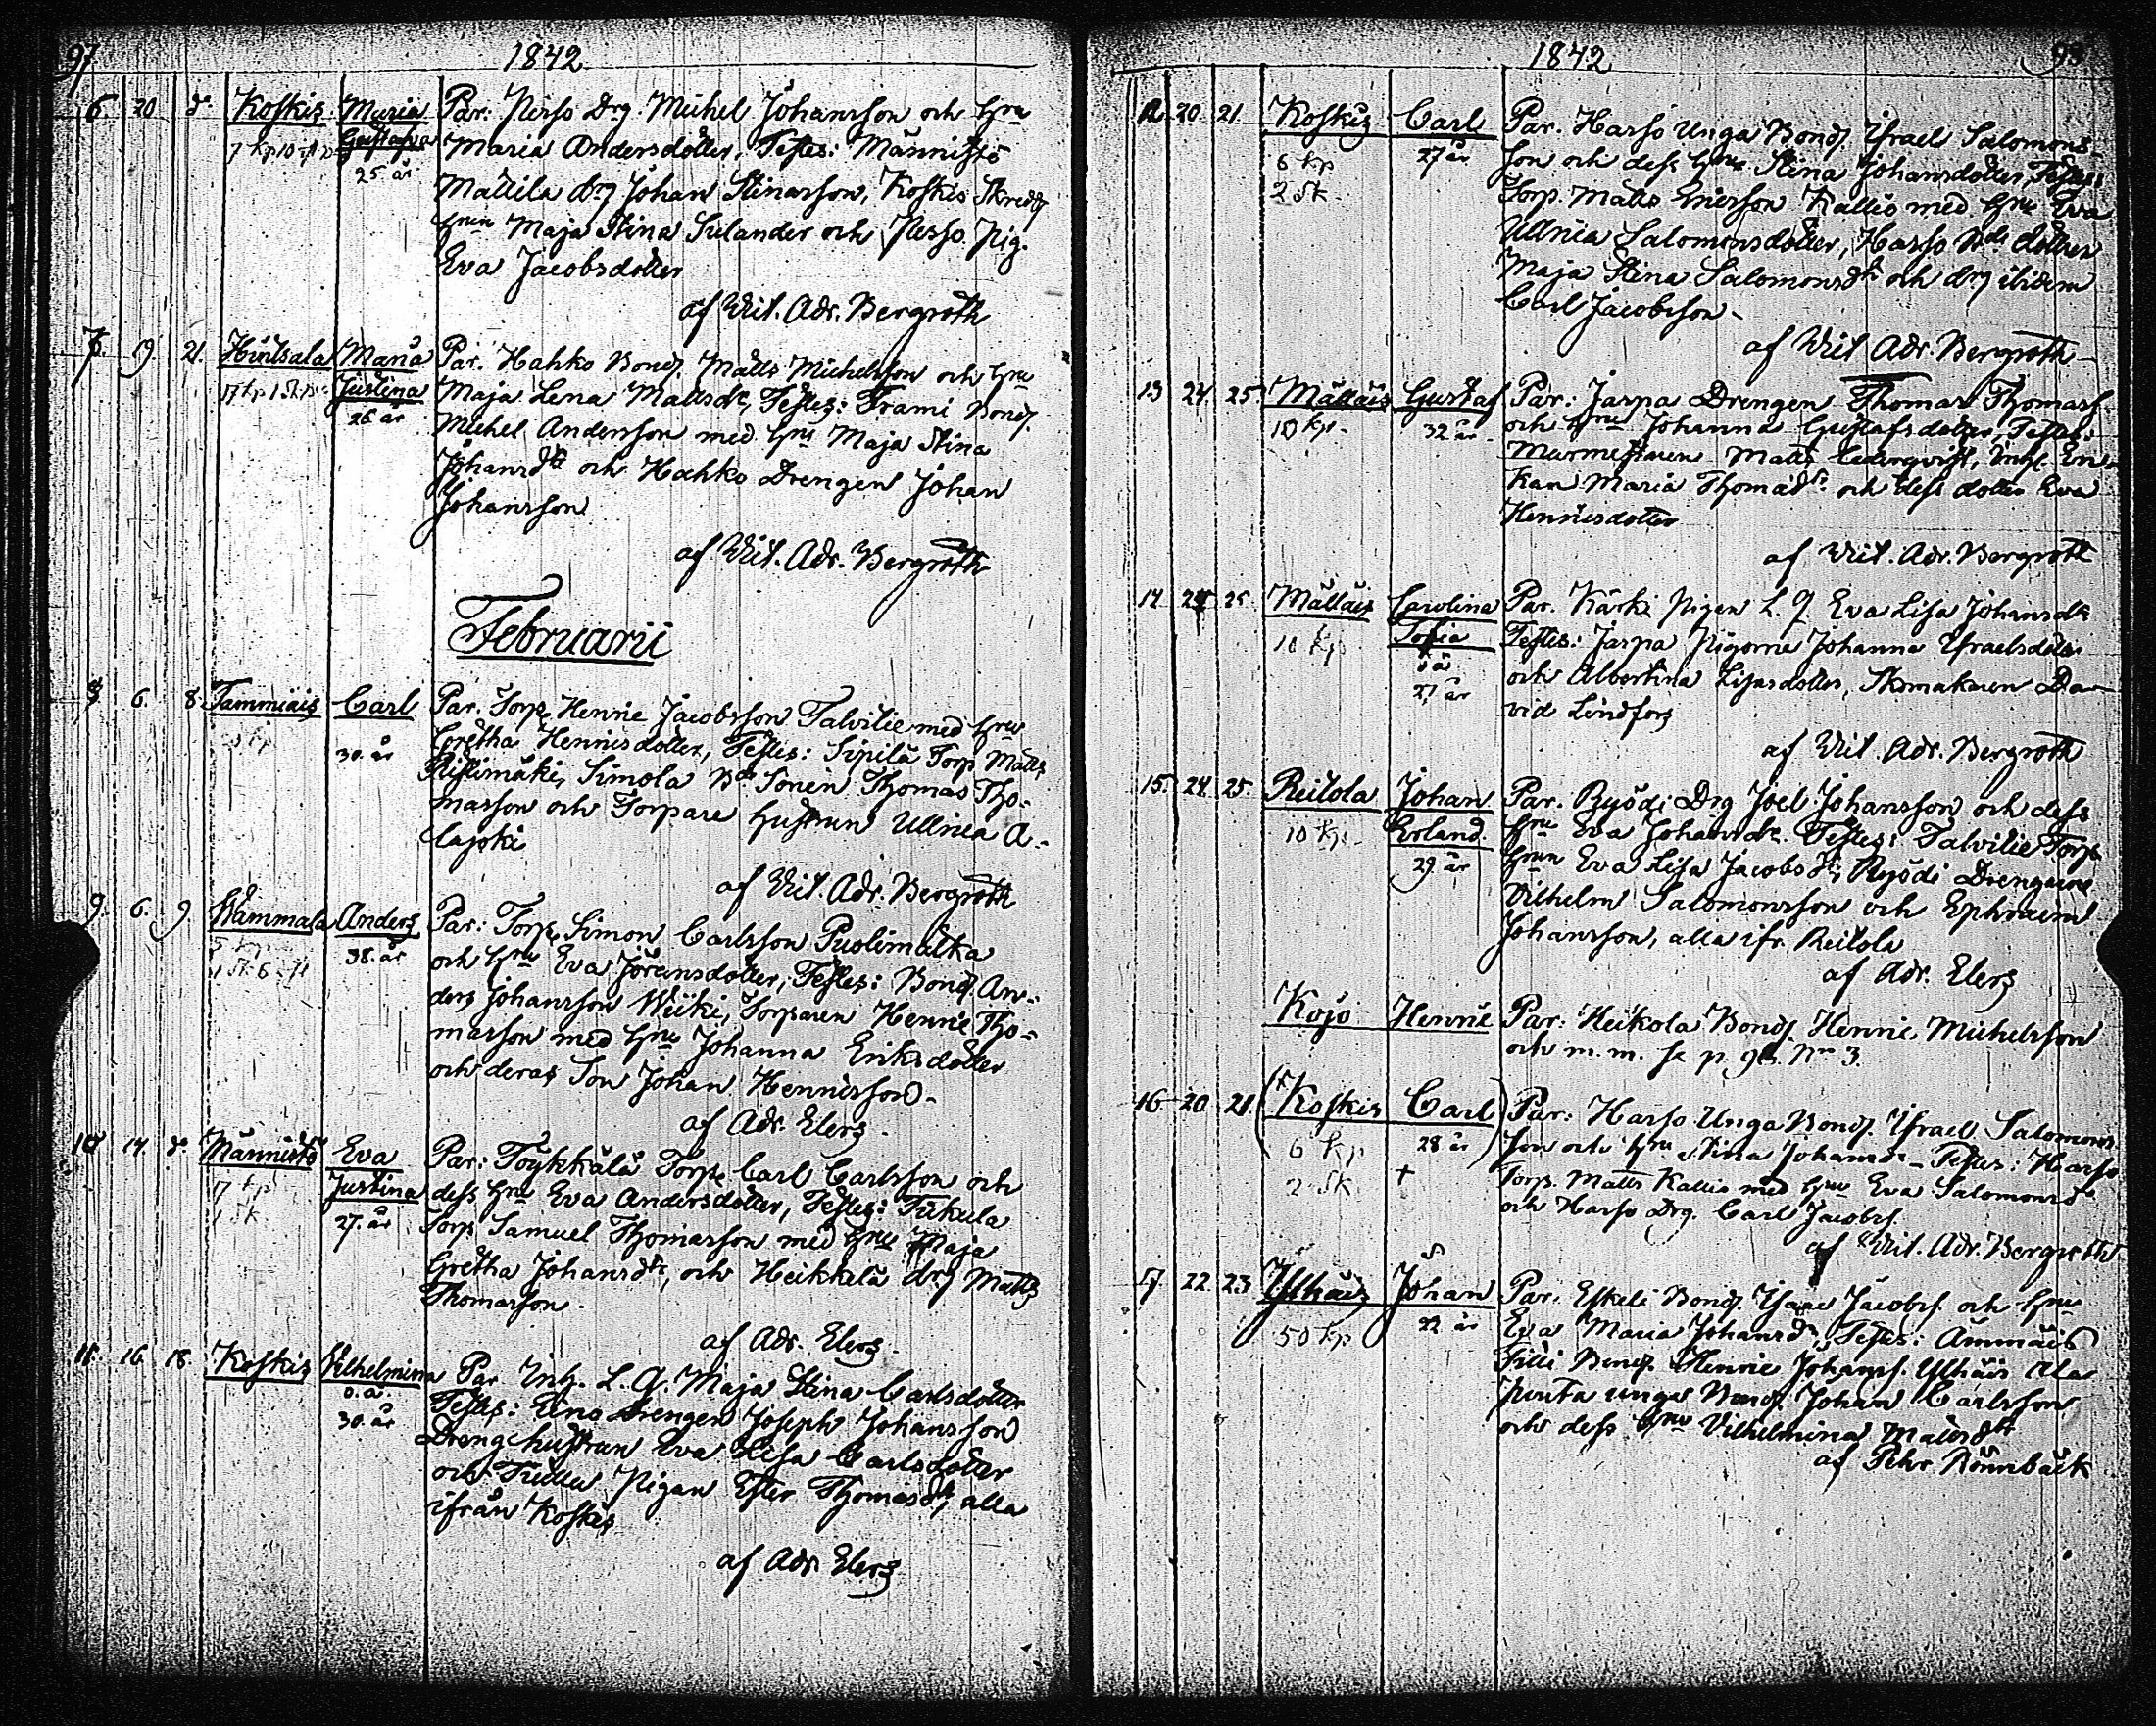 97 1842
6 20 d. Koskis Maria Par: Perho Drg. Michel Johansson och hru
7 kp 10 Gustafva Maria Andersdotter, Testes: Männistö
25 år Mattila drg Johan Stinasson, Koskis Skredd
hrun Maja Stina Sulander och Pig.
Eva Jacobsdotter
af Vit. Adr. Bergroth
7. 9. 21. Hintsala Maria Par. Hahko Bond. Matts Michelsson och hru
17 kp Justina Maja Lena Mattsdr, Testes: Frami Bond.
26 år Michel Andersson med hru Maja Stina
Johansdtr och Hahko Drengen Johan
Johansson
af Vit. Adr. Bergroth
Februarii
8 6. 8. Tammiais Carl Par. Torp. Henric Jacobsson Talvitie med hru
kp 30. år Gretha Henricsdotter, Testes: Sipilä Torp Matts
Ristimäki, Simola Bd Sonen Thomas Tho-
masson och Torpare hustrun Ullrica A-
lajoki
af Vit. Adr. Bergroth
9. 6. 9 Wammala Anders Par: Torp. Simon Carlsson Puolimatka
38. år och hru Eva Jöransdotter, Testes: Bond. An-
ders Johansson Wiiki, Torparen Henric Tho-
masson med hru Johanna Eriksdotter
och deras Son Johan Henricsson -
af Adr. Elers
10 14. d. Männistö Eva Par: Töykkälä Torp. Carl Carlsson och
7 kp Justina dess hru Eva Andersdotter, Testes:
1 Sk 27. år Torp Samuel Thomasson med hru Maja
Gretha Johansdtr, och Heikkilä drg Matts
Thomasson.
af Adr. Elers
11. 16. 18. Koskis Vilhelmina Par. Inh. L. Q. Maja Stina Carlsdotter
o. ä. Testes: Drengen Joseph Johansson
30. år Dreng hustrun Eva Lisa Carlsdotter
och Pigan Ester Thomasdtr, alla
ifrån Koskis
af Adr. Elers
1842
12 20 21 Koskis Carl Par. Harso Unga Bond. Israel Salomons-
6 kp 27 år son och dess hru Stina Johansdotter, Testes
2 Sk. Torp. Matts Ericsson Kallio med hru Eva
Ullrica Salomonsdotter, Harso Bds dotter
Maja Stina Salomonsdtr och drg ibidem
Carl Jacobsson -
af Vit Adr. Bergroth -
13 24 25. Mattäis Gustaf Par: Jaspa Drengen Thomas Thomass
10 kp. 32 år och hru Johanna Gustafsdotter, Testes:
Murmestaren Matts Cederqvist, Inh. En-
kan Maria Thomasdtr och dess dotter Eva
Henricsdotter
af Vit. Adr. Bergroth
14 24 25 Mattäis Carolina Par. Kärki Pigan L. Q. Eva Lisa Johansdr
10 kp Sofia Testes: Jaspa Pigorne Johanna Israelsdotter
o ä och Albertina Lisasdotter, Skomakaren Da-
27 år vid Lindfors
af Vit. Adr. Bergroth
15. 24. 25. Reitola Johan Par. Ryödi Drg Joel Johansson och dess
10 kp. Erland. hru Eva Johansdr. Testes: Talvitie Torp
29. år hrun Eva Lisa Jacobsdr, Ryödi Drengarne
Vilhelm Salomonsson och Ephraim
Johansson, alla ifr. Reitola
af Adr. Elers
Kojo Henric Par: Heikola Bond. Henric Michelsson
och m. m. se p. 96. No 3.
16. 20 21 (Koskis Carl) Par: Harso Unga Bond. Israel Salomons
6 kp 28 år son och hru Stina Johansdr - Testes: Harso
2 Sk + Torp. Matts Kallio med hru Eva Salomonsdr
och Harso Drg. Carl Jacobss.
af Vit. Adr. Bergroth
17 22 23 Ylihäis Johan Par. Eskeli Bond. Isaac Jacobss. och hru
50 kp 22 år Eva Maria Johansdr, Testes: Ämmäis
Filli Bond. Henric Johanss. Ylihäis Ala
unga Bond. Johan Carlsson
och dess hru Vilhelmina Mattsdtr
af Pehr Rönnbäck